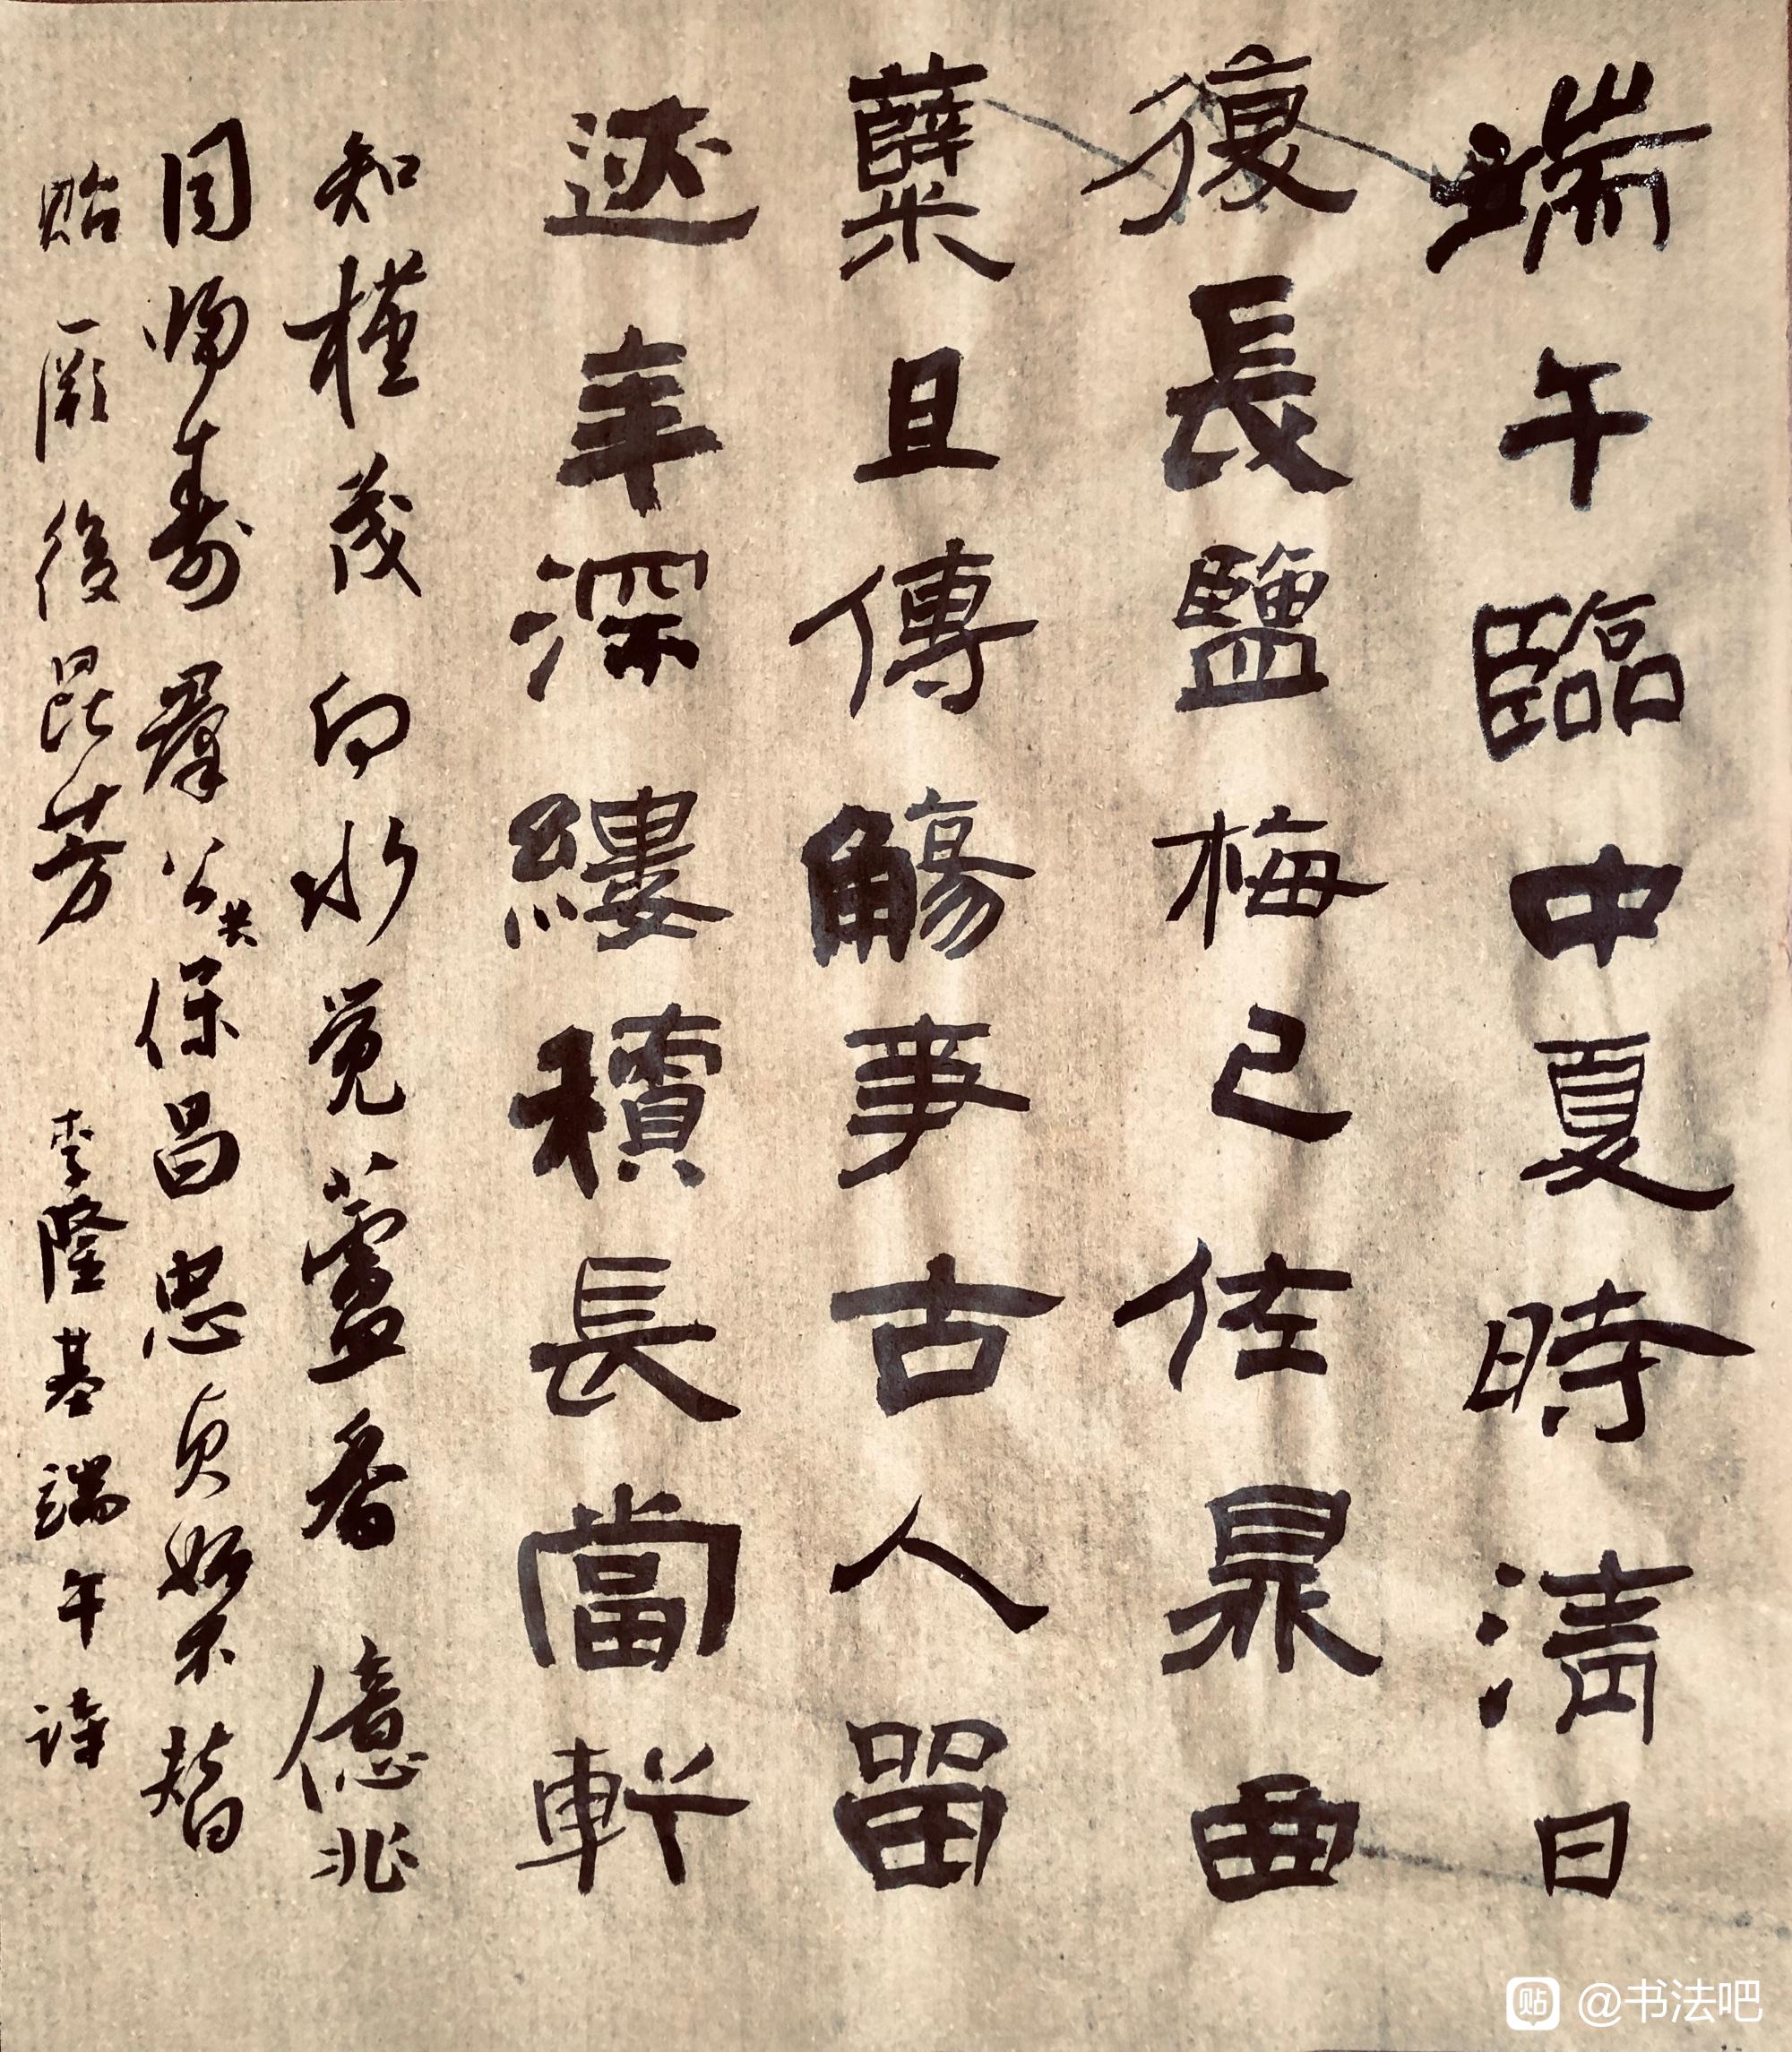 端午臨中夏時清日
復長鹽梅已佐鼎曲
糵且傳觴事古人留
迹年深縷積長當軒
知槿茂向水覺蘆香億兆
同歸壽羣公共保昌忠貞如不替
貽厥後昆芳 李隆基端午詩
贴 @书法吧